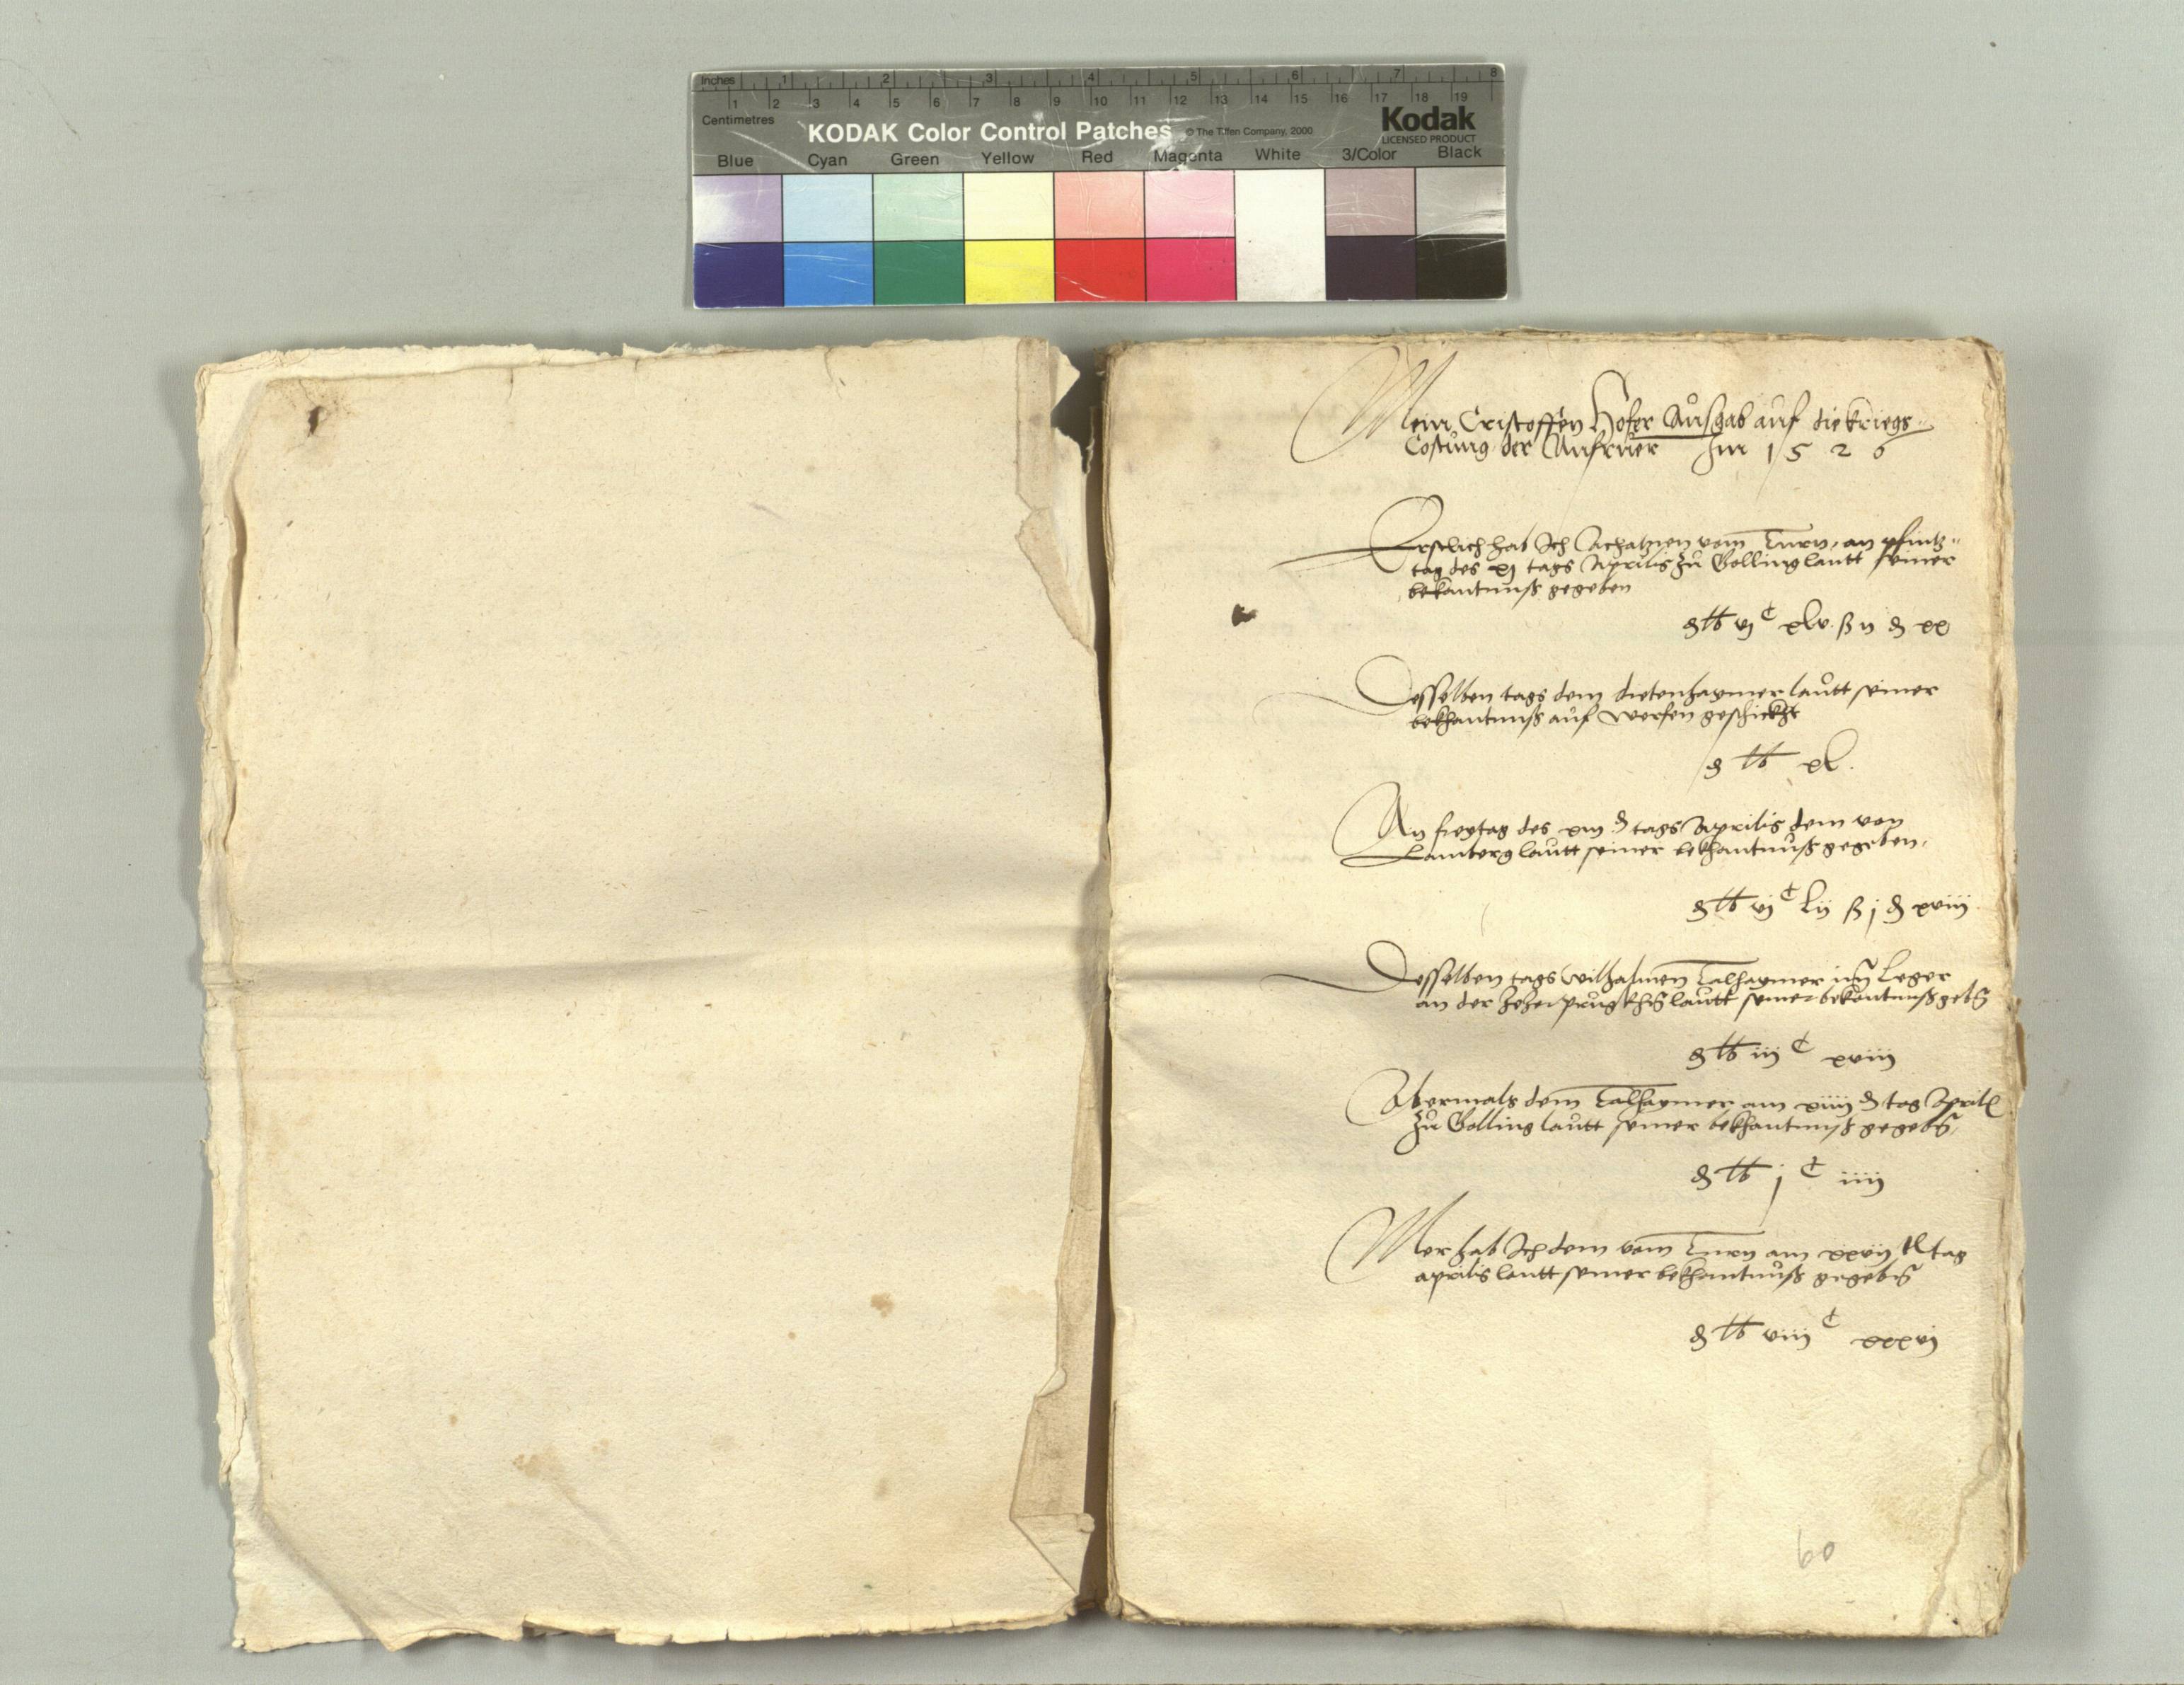 Inches 1 2 3 4 5 6 7 8
1 2 3 4 5 6 7 8 9 10 11 12 13 14 15 16 17 18 19
Centimetres
KODAK Color Control Patches © The Tiffen Company, 2000 Kodak
LICENSED PRODUCT
Blue Cyan Green Yellow Red Magenta White 3/Color Black
Mein Cristoffen Hofer Außgab auf die kriegs
Costung der Aufruer Im 1526
Erstlich hab Ich Achatzien vom Turn, an pfintz
tag des xj tags Aprilis zů Golling lautt seiner
bekantnuß gegeben
₰ lb vj c xlv ß ij ₰ xx
Desselben tags dem dietenhaymer laůtt seiner
bekhantnuß auf Werfen geschickht
₰ lb xl.
An freytag des xiii tags Aprilis dem von
Lamberg laůtt seiner bekhantnůß gegeben,
₰ lb vj c lij ß j ₰ xviij
Desselben tags Wilhalmen Talhaymer im Leger
an der lautt seiner bekantnuß gebñ
₰ lb iij c xviij
Abermals dem Talhaymer am xiiij tag April
zů Golling laůtt seiner bekhantnuß gegebñ,
₰ lb j c iiij
Mer hab Ich dem vom Turn am xxvij tag
aprilis lautt seiner bekhantnůß gegebñ
₰ lb viij c xxxvj
60